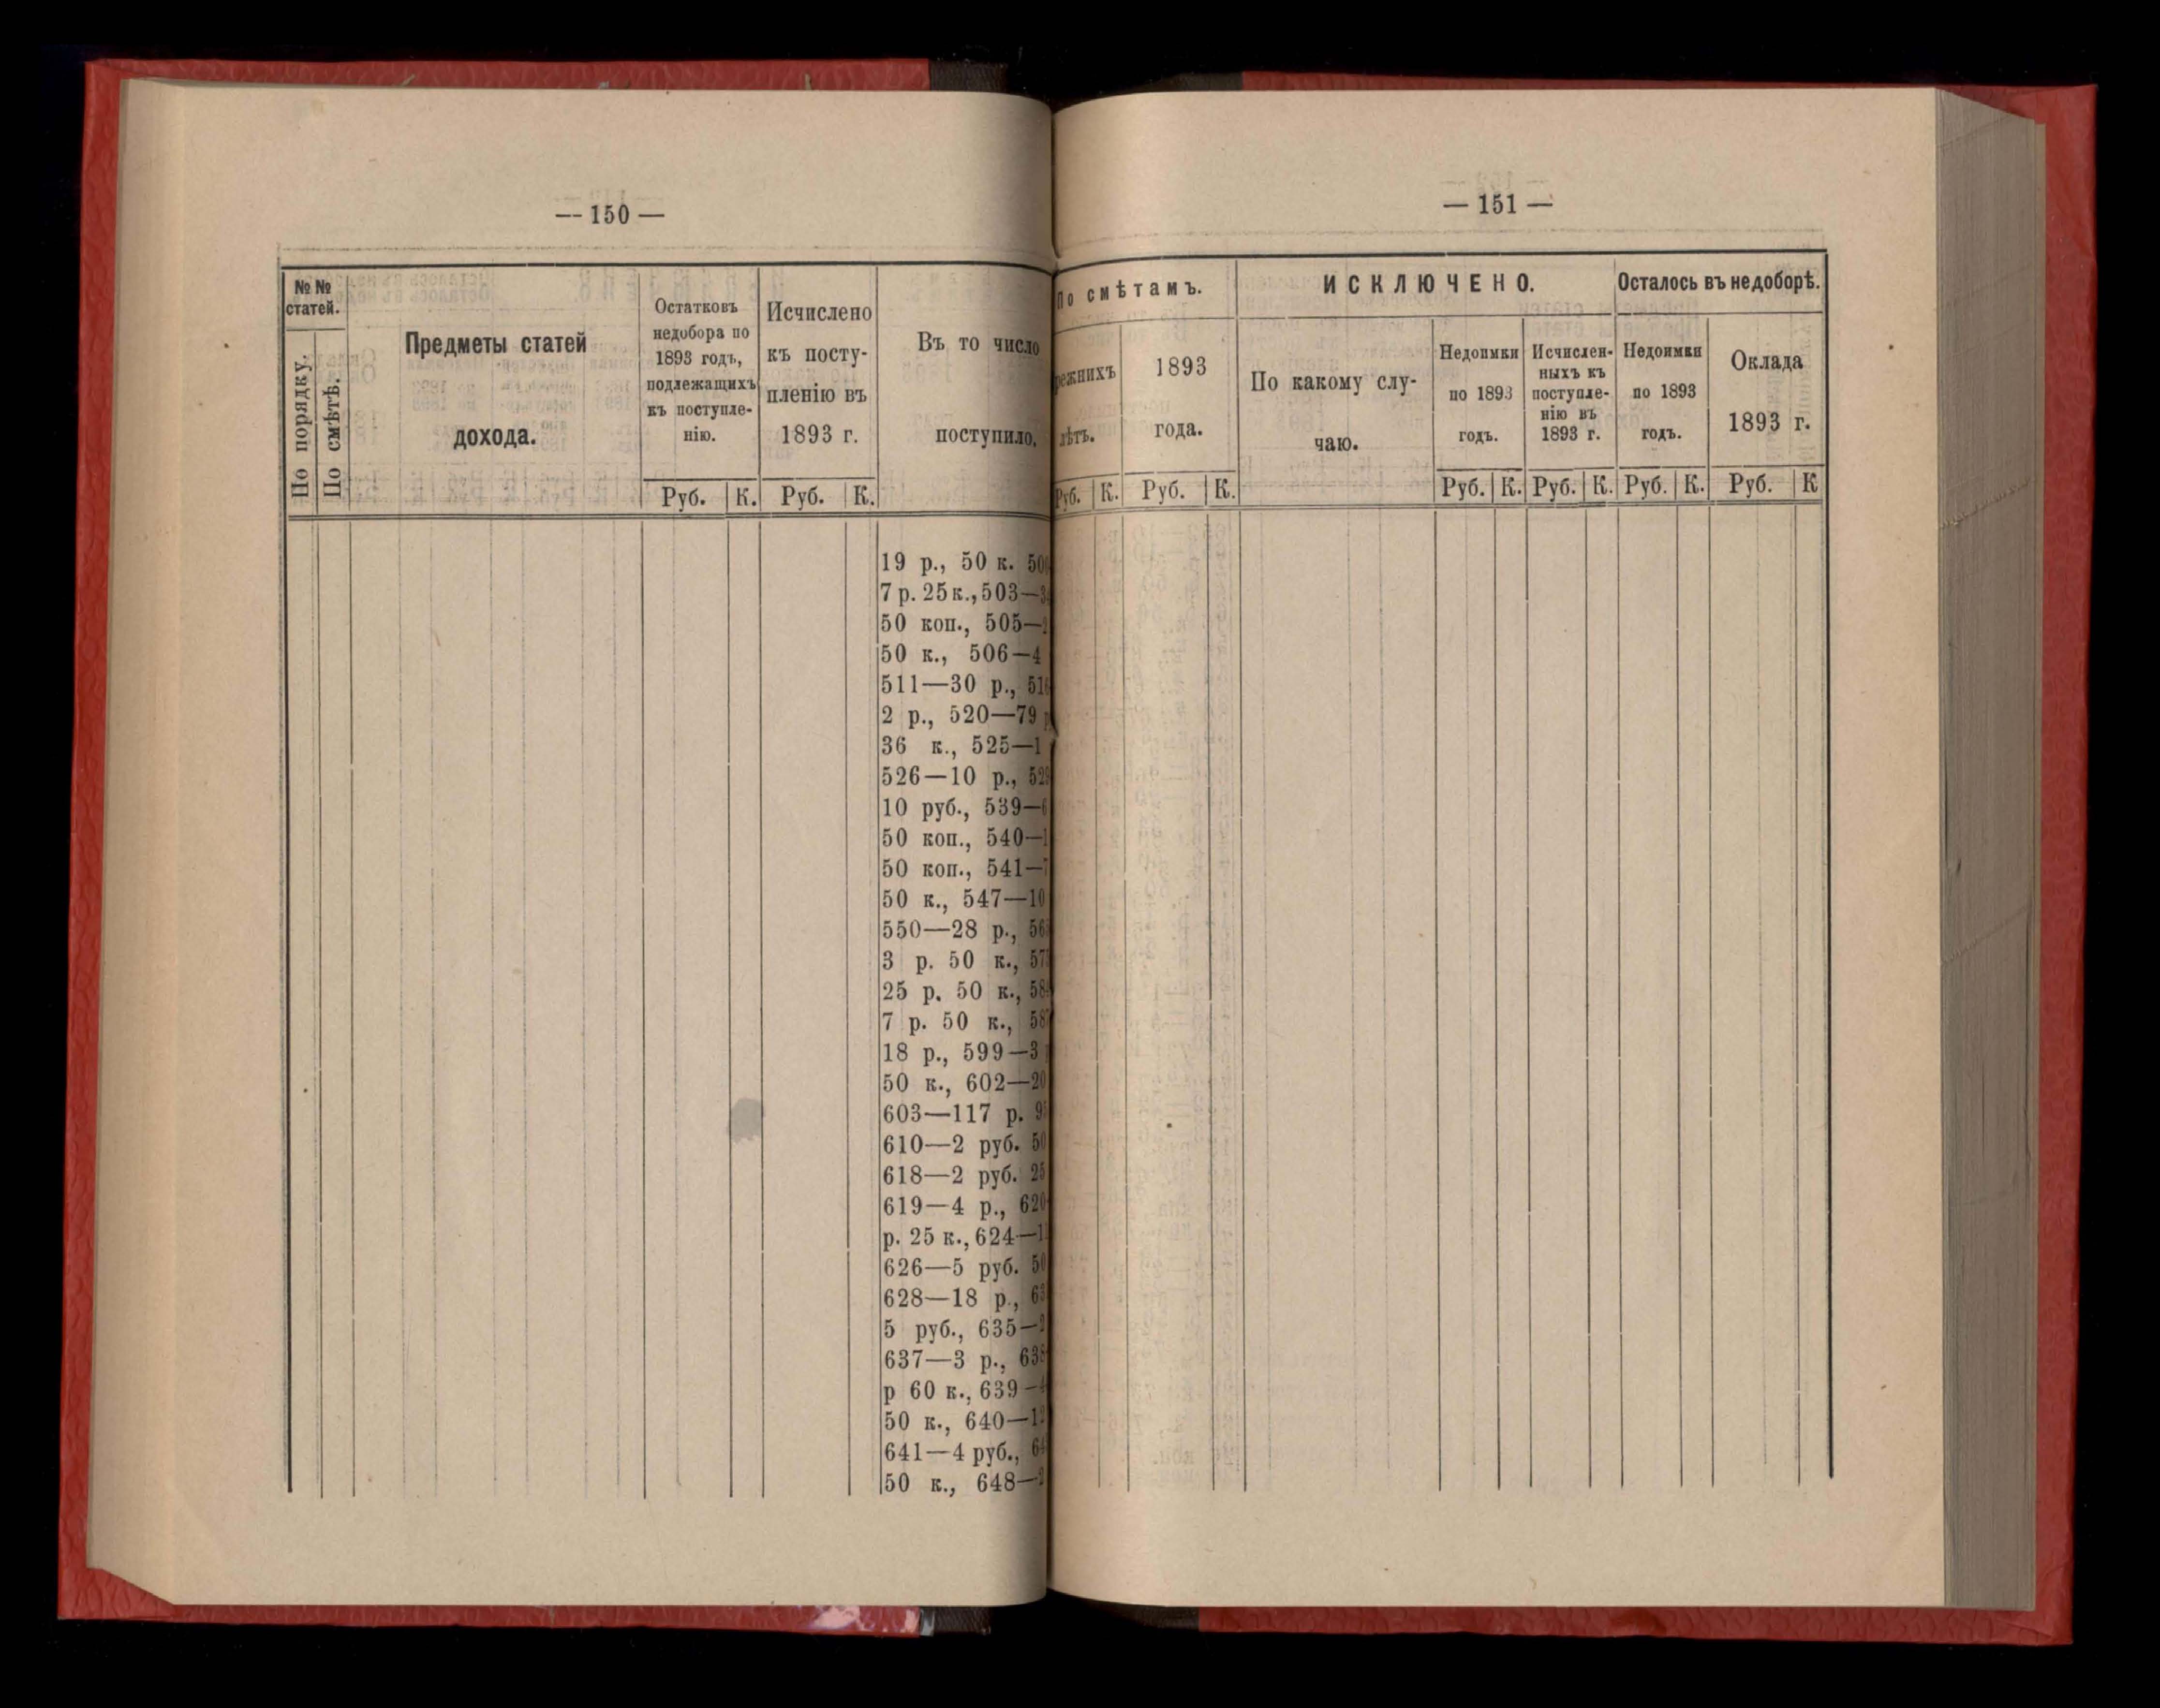 — 150 —
№ №
статей.
По порядку.
По смѣтѣ.
Предметы статей
дохода.
Остатковъ
недобора по
1893 годъ,
подлежащихъ
къ поступле-
нію.
Руб. К.
Исчислено
къ посту-
пленію въ
1893 г.
Руб. К.
Въ то число
поступило.
19 р., 50 к.
7 р. 25 к., 503—
50 коп., 505—
50 к., 506—4
511—30 р.,
2 р., 520—79
36 к., 525—1
526—10 р.,
10 руб., 539—
50 коп., 540—
50 коп., 541—
50 к., 547—10
550—28 р.,
3 р. 50 к.,
25 р. 50 к.,
7 р. 50 к.,
18 р., 599—3
50 к., 602—20
603—117 р.
610—2 руб. 50
618—2 руб. 25
619—4 р., 620
р. 25 к., 624—
626—5 руб. 50
628—18 р.,
5 руб., 635—
637—3 р., 638
р 60 к., 639—
50 к., 640—
641—4 руб.,
50 к., 648—
— 151 —
По смѣтамъ.
режнихъ
лѣтъ.
Руб. К.
1893
года.
Руб. К.
ИСКЛЮЧЕНО.
По какому слу-
чаю.
Недоимки
по 1893
годъ.
Руб. К.
Исчислен-
ныхъ къ
поступле-
нію въ
1893 г.
Руб. К.
Осталось въ недоборѣ.
Недоимки
по 1893
годъ.
Руб. К.
Оклада
1893 г.
Руб. К